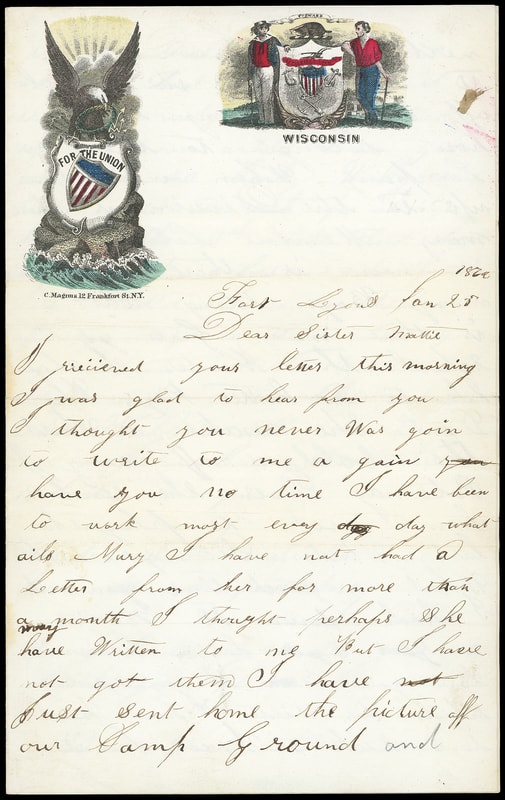 FORWARD
WISCONSIN
FOR THE UNION
C. Magnus 12 Frankfort St. N.Y.
Fort Lyons Jan 25
Dear Sister Mattie
I reciened your letter this morning
I was glad to hear from you
I thought you never Was goin
to write to me a gain you
have you no time I have been
to work most every day day what
ails Mary I have not had a
Letter from her for more than
a month I thought perhaps She
may
have Written to me But I have
not got them I have not
Just sent home the picture off
our Camp Ground and